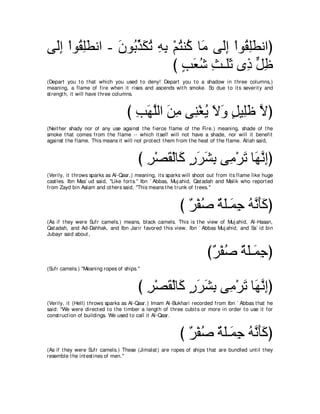 (انطَلِقُواْ إِلَى مَا كُنتُمْ بِهِ تُكَذِّبُونَ - انطَلِقُواْ إِلَى
ظِلٍّ ذِي ثَلَـثِ شُعَبٍ )
(Depart you to that which you used to deny! Depart you to a shadow in three columns,)
meaning, a flame of fire when it rises and ascends with smoke. So due to its severity and
strength, it will have three columns.
(لاَّ ظَلِيلٍ وَلاَ يُغْنِى مِنَ اللَّهَبِ )
(Neither shady nor of any use against the fierce flame of the Fire.) meaning, shade of the
smoke that comes from the flame -- which itself will not have a shade, nor will it benefit
against the flame. This means it will not protect them from the heat of the flame. Allah said,
(إِنَّهَا تَرْمِى بِشَرَرٍ كَالْقَصْرِ )
(Verily, it throws sparks as Al-Qasr,) meaning, its sparks will shoot out from its flame like huge
castles. Ibn Mas`ud said, "Like forts." Ibn `Abbas, Mujahid, Qatadah and Malik who reported
from Zayd bin Aslam and others said, "This means the trunk of trees."
(كَأَنَّهُ جِمَـلَةٌ صُفْرٌ )
(As if they were Sufr camels.) means, black camels. This is the view of Mujahid, Al-Hasan,
Qatadah, and Ad-Dahhak, and Ibn Jarir favored this view. Ibn `Abbas Mujahid, and Sa`id bin
Jubayr said about,
(جِمَـلَةٌ صُفْرٌ)
(Sufr camels.) "Meaning ropes of ships."
(إِنَّهَا تَرْمِى بِشَرَرٍ كَالْقَصْرِ )
(Verily, it (Hell) throws sparks as Al-Qasr.) Imam Al-Bukhari recorded from Ibn `Abbas that he
said: "We were directed to the timber a length of three cubits or more in order to use it for
construction of buildings. We used to call it Al-Qasr.
(كَأَنَّهُ جِمَـلَةٌ صُفْرٌ )
(As if they were Sufr camels.) These (Jimalat) are ropes of ships that are bundled until they
resemble the intestines of men."